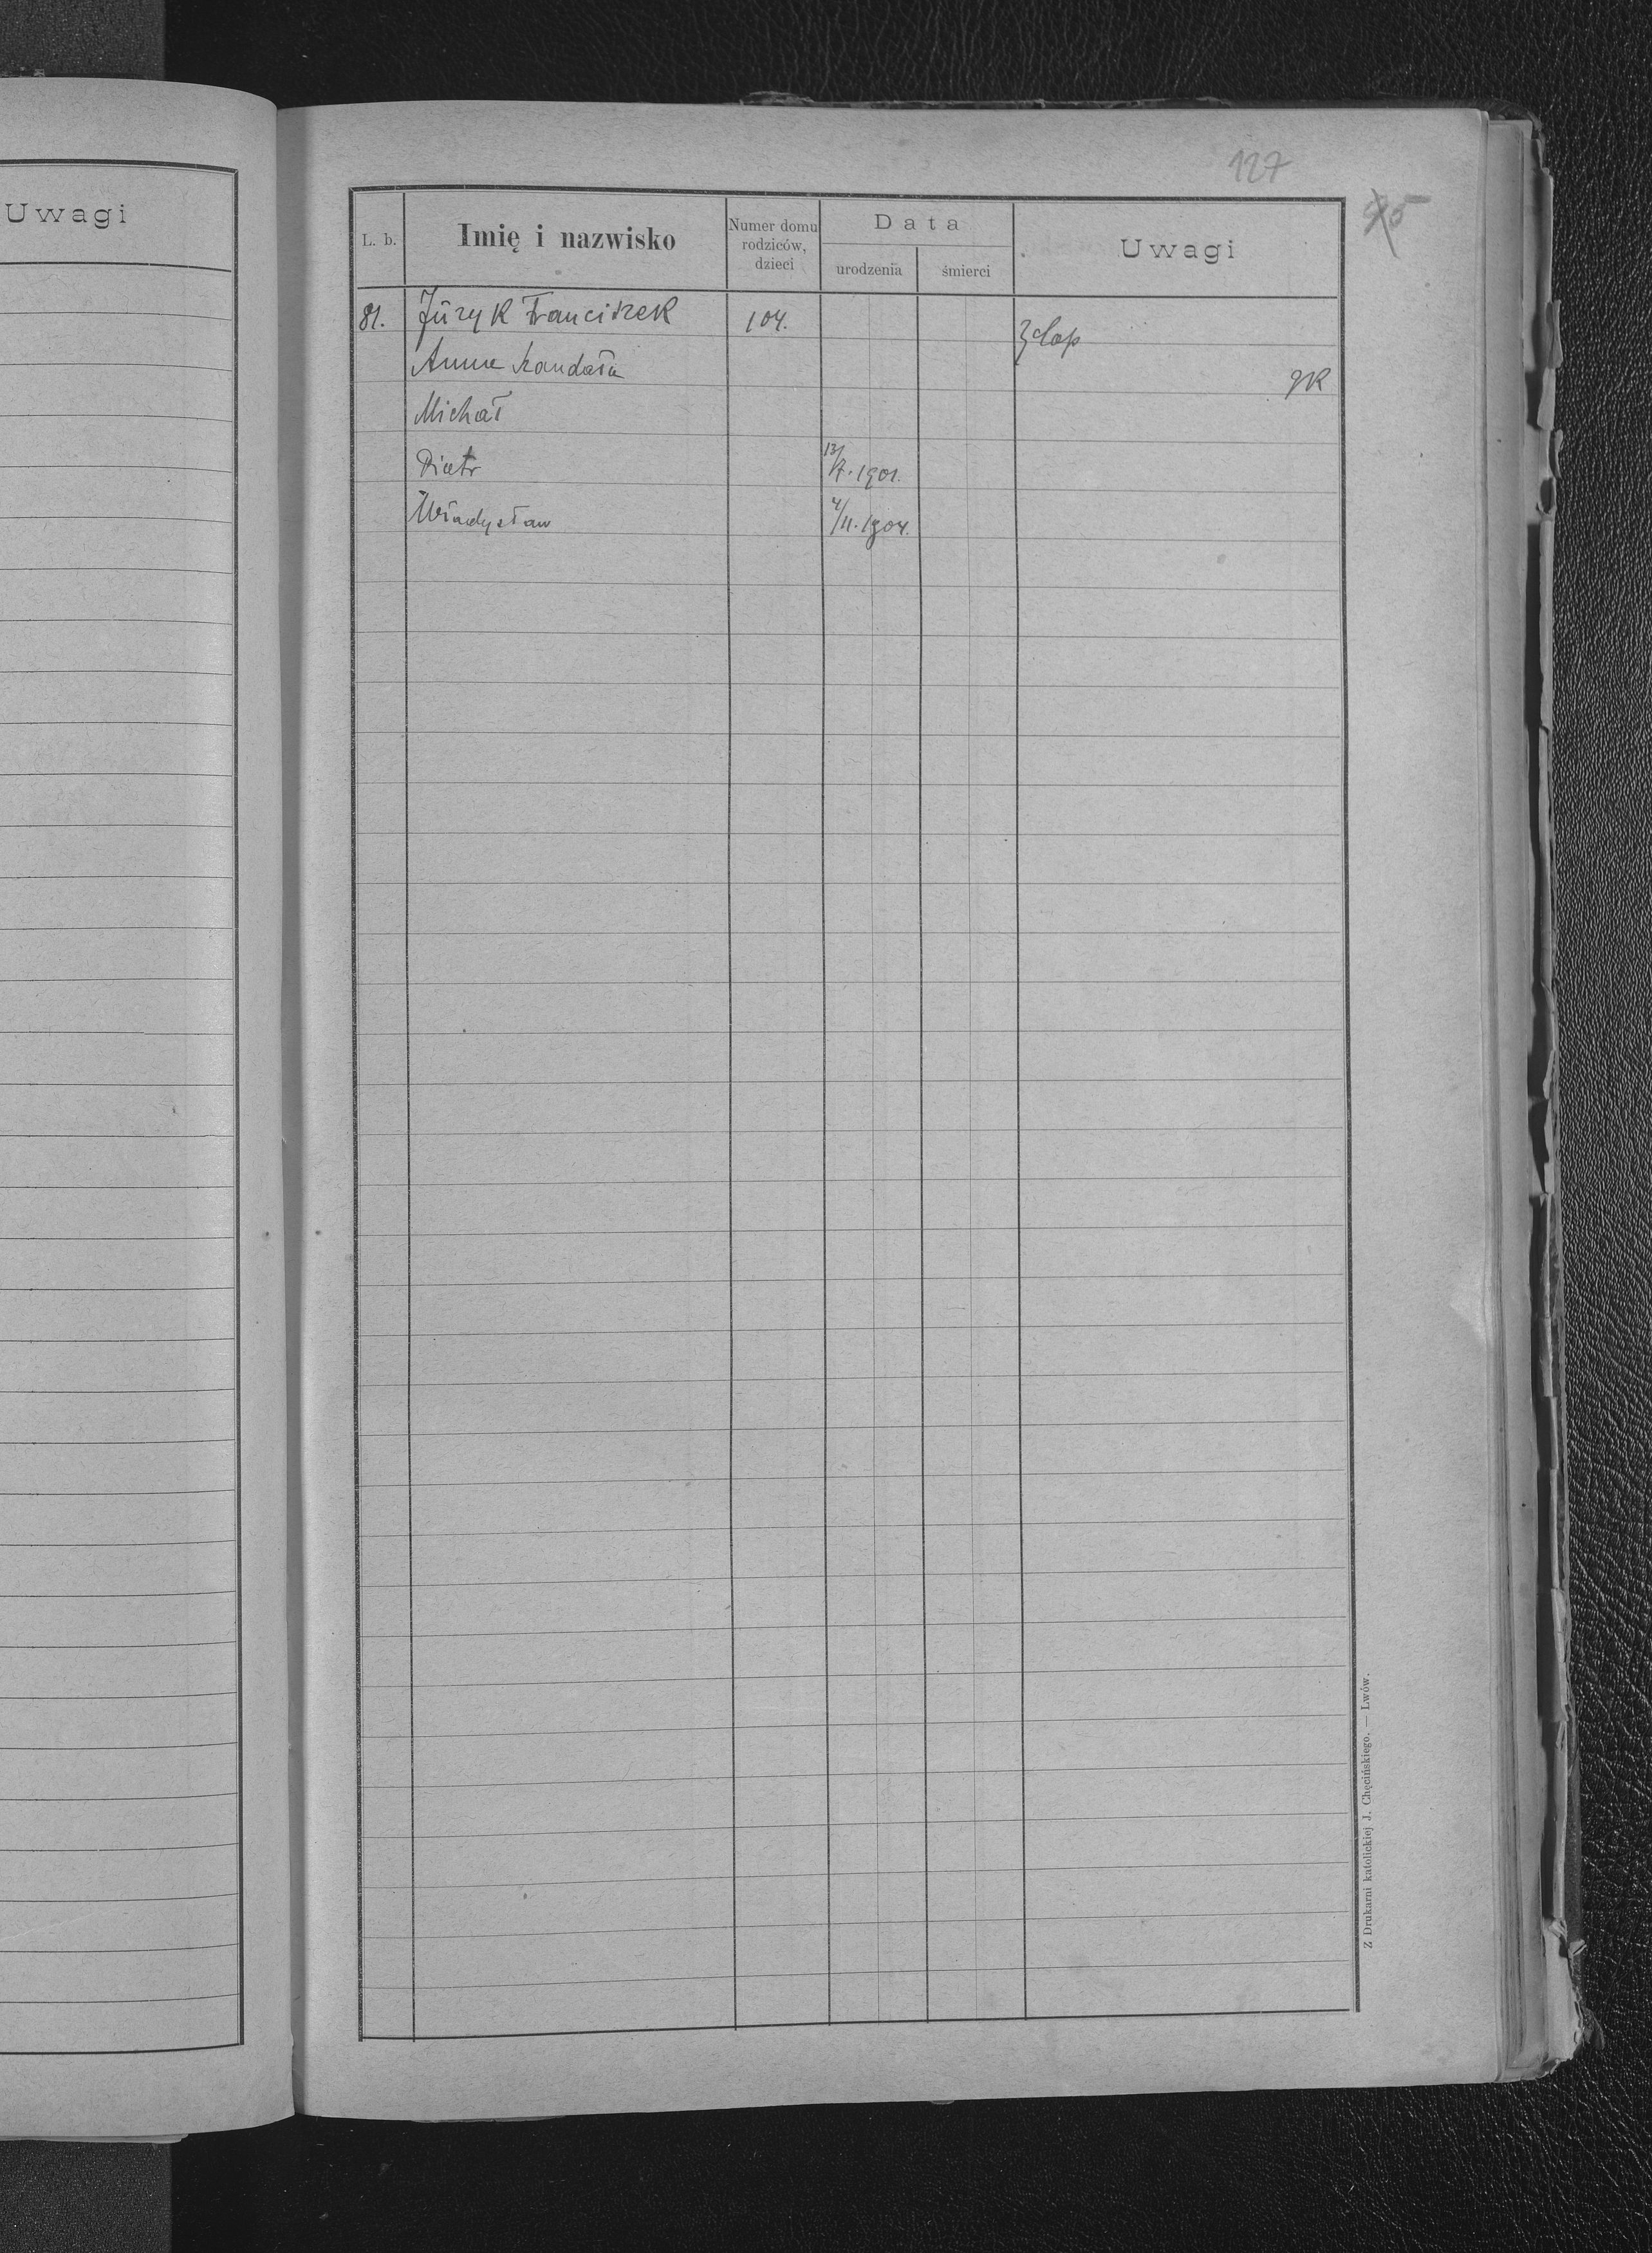 Uwagi
127
L. b.
Imię i nazwisko
Numer domu rodziców, dzieci
Data
urodzenia
śmierci
Uwagi
81. Júzyk Franciszek 104.
Anna
gk
Michał
Piotr 13/ 1901.
Władysław 4/II. 1904.
Z Drukarni katolickiej J. Chęcińskiego. — Lwów.